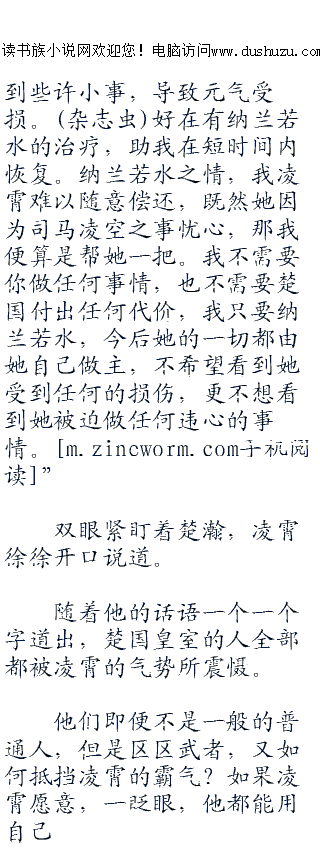 读书族小说网欢迎您！电脑访问www.dushuzu.com
到些许小事，导致元气受
损。(杂志虫)好在有纳兰若
水的治疗，助我在短时间内
恢复。纳兰若水之情，我凌
霄难以随意偿还，既然她因
为司马凌空之事忧心，那我
便算是帮她一把。我不需要
你做任何事情，也不需要楚
国付出任何代价，我只要纳
兰若水，今后她的一切都由
她自己做主，不希望看到她
受到任何的损伤，更不想看
到她被迫做任何违心的事
情。[m.zincworm.com手机阅
读]”
双眼紧盯着楚瀚，凌霄
徐徐开口说道。
随着他的话语一个一个
字道出，楚国皇室的人全部
都被凌霄的气势所震慑。
他们即便不是一般的普
通人，但是区区武者，又如
何抵挡凌霄的霸气？如果凌
霄愿意，一眨眼，他都能用
自己